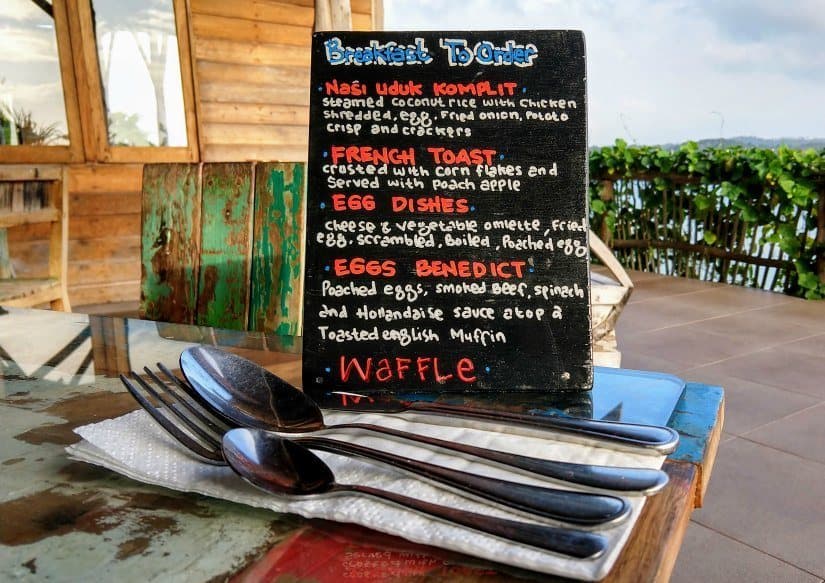 Breakfast To Order
Nasi uduk KOMPLIT
steamed coconut rice with chicken
shredded, egg, fried onion, potato
crisp and crackers
FRENCH TOAST
crosted with corn flakes and
Served with poach apple
EGG DISHES
cheese & vegetable omlette, fried
egg, scrambled, Boiled, Poached egg
EGGS BENEDICT
Poached eggs, smoked Beef, spinach
and Hollandaise sauce atop a
Toasted english Muffin
Waffle